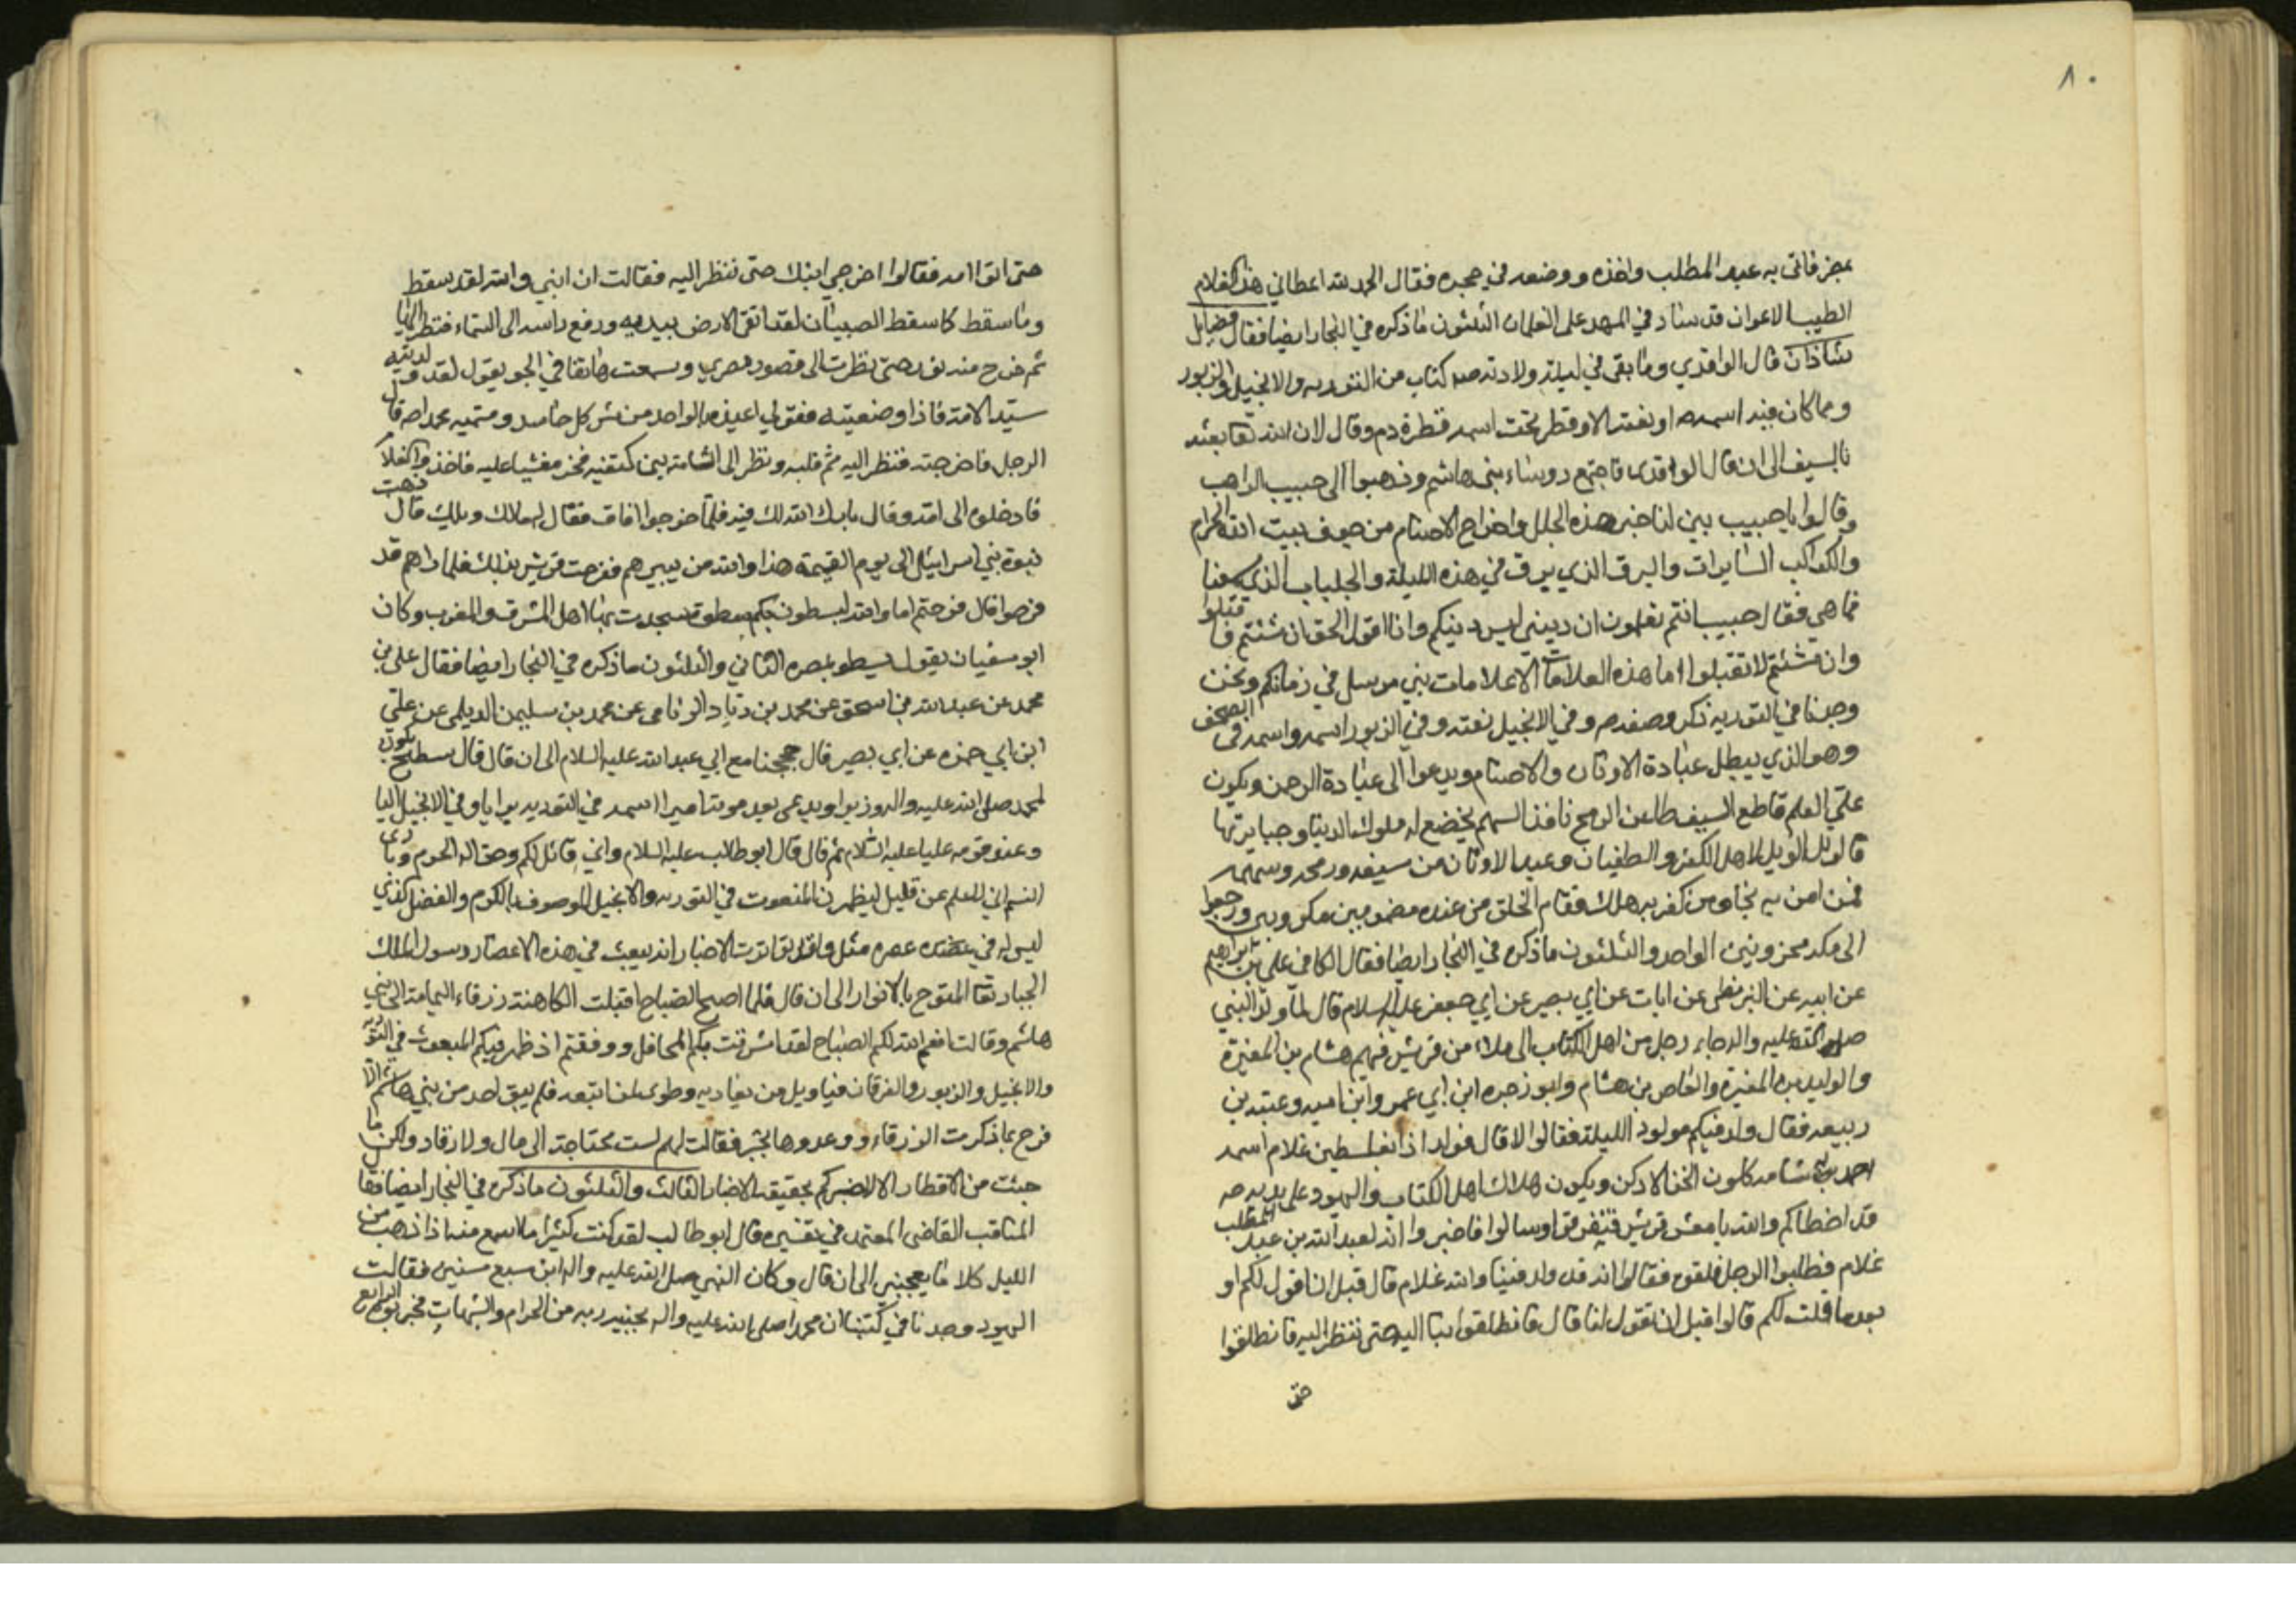 ٨٠
فاتى به عبد المطلب واخذه ووضعه في حجره فقال الحمد لله اعطاني هذا الغلام
الطيب الاعوان قد ساد في المهد على الغلمان الثلثون ماذكره في البحار ايضا فقال فضايل
شاذان قال الواقدي وما بقى في ليلة ولادته صه كتاب من التوريه والانجيل والزبور
ومما كان فيه اسمه صه او نعته الا وقطر تحت اسمه قطرة دم وقال لان الله تعا بعثه
بالسيف الى ان قال الواقدي فاجتمع روساء بني هاشم وذهبوا الى حبيب الراهب
وقالوا يا حبيب بين لنا خبر هذه الجلل واخراج الاصنام من جوف بيت الله الحرام
والكواكب السايرات والبرق الذي يبرق في هذه الليلة والجلباب الذي سمعنا
فما هي فقال حبيب انتم تعلمون ان ديني ليس دينكم وانا اقول الحق ان شئتم فاقبلوا
وان شئتم لا تقبلوا ما هذه العلامات الا علامات نبي مرسل في زمانكم ونحن
وجدنا في التوريه ذكر وصفه صه وفي الانجيل نعته وفي الزبور اسمه واسمه في الصحف
وهو الذي يبطل عبادة الاوثان والاصنام ويدعوا الى عبادة الرحمن ويكون
على العلم قاطع السيف طاعن الرمح نافذ السهم يخضع له ملوك الدنيا وجبابرتها
فالويل الويل لاهل الكفر والطغيان وعبد الاوثان من سيفه ورمحه وسهمه
فمن امن به نجا ومن كفر به هلك فقام الخلق من عنده مغمومين مكروبين ورجعوا
الى مكه محزونين الواحد والثلثون ماذكره في البحار ايضا فقال الكافي علي بن ابراهيم
عن ابيه عن البزنطي عن ابان عن ابي بصير عن ابي جعفر عليه السلام قال لما ولد النبي
صلى الله عليه واله جاء رجل من اهل الكتاب الى ملاء من قريش فيهم هشام بن المغيرة
والوليد بن المغيرة والعاص بن هشام وابو وجزه ابن ابي عمرو ابن اميه وعتبه بن
ربيعه فقال ولد فيكم مولود الليلة فقالوا لا قال فولد اذا بفلسطين غلام اسمه
احمد به شامه كلون الخز الادكن ويكون هلاك اهل الكتاب واليهود على يديه صه
قد اخطاكم والله يا معشر قريش فتفرقوا وسالوا فاخبروا انه لعبد الله بن عبد المطلب
غلام فطلبوا الرجل فلقوه فقالوا انه قد ولد فينا والله غلام قال قبل ان اقول لكم او
بعد ما قلت لكم قالوا قبل ان تقول لنا قال فانطلقوا بنا اليه حتى ننظر اليه فانطلقوا
حتى
حتى اتوا امه فقالوا اخرجي ابنك حتى ننظر اليه فقالت ان ابني والله لقد سقط
وما سقط كما سقط الصبيان لقد اتقى الارض بيديه ورفع راسه الى السماء فنظر اليها
ثم خرج منه نور حتى نظرت الى قصور بصرى وسمعت هاتفا في الجو يقول لقد ولدتيه
سيد الامة فاذا وضعتيه فقولي اعيذه بالواحد من شر كل حاسد وسميه محمدا صه قال
الرجل فاخرجيه فاخرجته فنظر اليه ثم قلبه ونظر الى الشامة بين كتفيه فخر مغشيا عليه فاخذوا الغلام
فادخلوه الى امه وقال بارك الله لك فيه فلما خرجوا افاق فقال له مالك ويلك قال ذهبت
نبوة بني اسرائيل الى يوم القيمة هذا والله من يبيرهم ففرحت قريش بذلك فلما راهم قد
فرحوا قال فرحتم اما والله ليسطون بكم سطوة يتحدث بها اهل المشرق والمغرب وكان
ابو سفيان يقول يسطو بمصره الثاني والثلثون ماذكره في البحار ايضا فقال علي بن
محمد عن عبد الله بن اسحق عن محمد بن زياد عن محمد بن سليمن الديلمي عن علي
ابن ابي حمزه عن ابي بصير قال حججنا مع ابي عبد الله عليه السلام الى ان قال قال سطيح يكون
لمحمد صلى الله عليه واله وزيرا ويدعى بعد موته اميرا اسمه في التوريه برايا وفي الانجيل اليا
وعند قومه عليا عليه السلام ثم قال قال ابو طالب عليه السلام واني قائل لكم وحق اله الحرم وباري
النسم اني لاعلم عن قليل ليظهرن المنعوت في التوريه والانجيل الموصوف بالكرم والفضل الذي
ليس له في عصره مثل ولقد تواترت الاخبار انه يبعث في هذه الاعصار رسول الملك
الجبار تعا المتوج بالانوار الى ان قال فلما اصبح الصباح اقبلت الكاهنة زرقاء اليمامة الى بني
هاشم وقالت انعم الله لكم الصباح لقد اشرقت بكم المحافل ووفقتم اذ ظهر فيكم المبعوث في التوريه
والانجيل والزبور والفرقان فياويل من يعاديه وطوبى لمن اتبعه فلم يبق احد من بني هاشم الا
فرح بما ذكرت الزرقاء ووعدوها بخير فقالت لهم لست محتاجة الى مال ولا رفاد ولكن ما
جئت من الاقطار الا لاخبركم بحقيقة الاخبار الثالث والثلثون ماذكره في البحار ايضا فقال
المناقب القاضي المعتمد في تفسيره قال ابو طالب لقد كنت كثيرا ما اسمع منه اذا ذهب من
الليل كلاما يعجبني الى ان قال وكان النبي صلى الله عليه واله ابن سبع سنين فقالت
اليهود وجدنا في كتبنا ان محمدا صلى الله عليه واله يجنبه ربه من الحرام والشبهات فجربوه الرابع